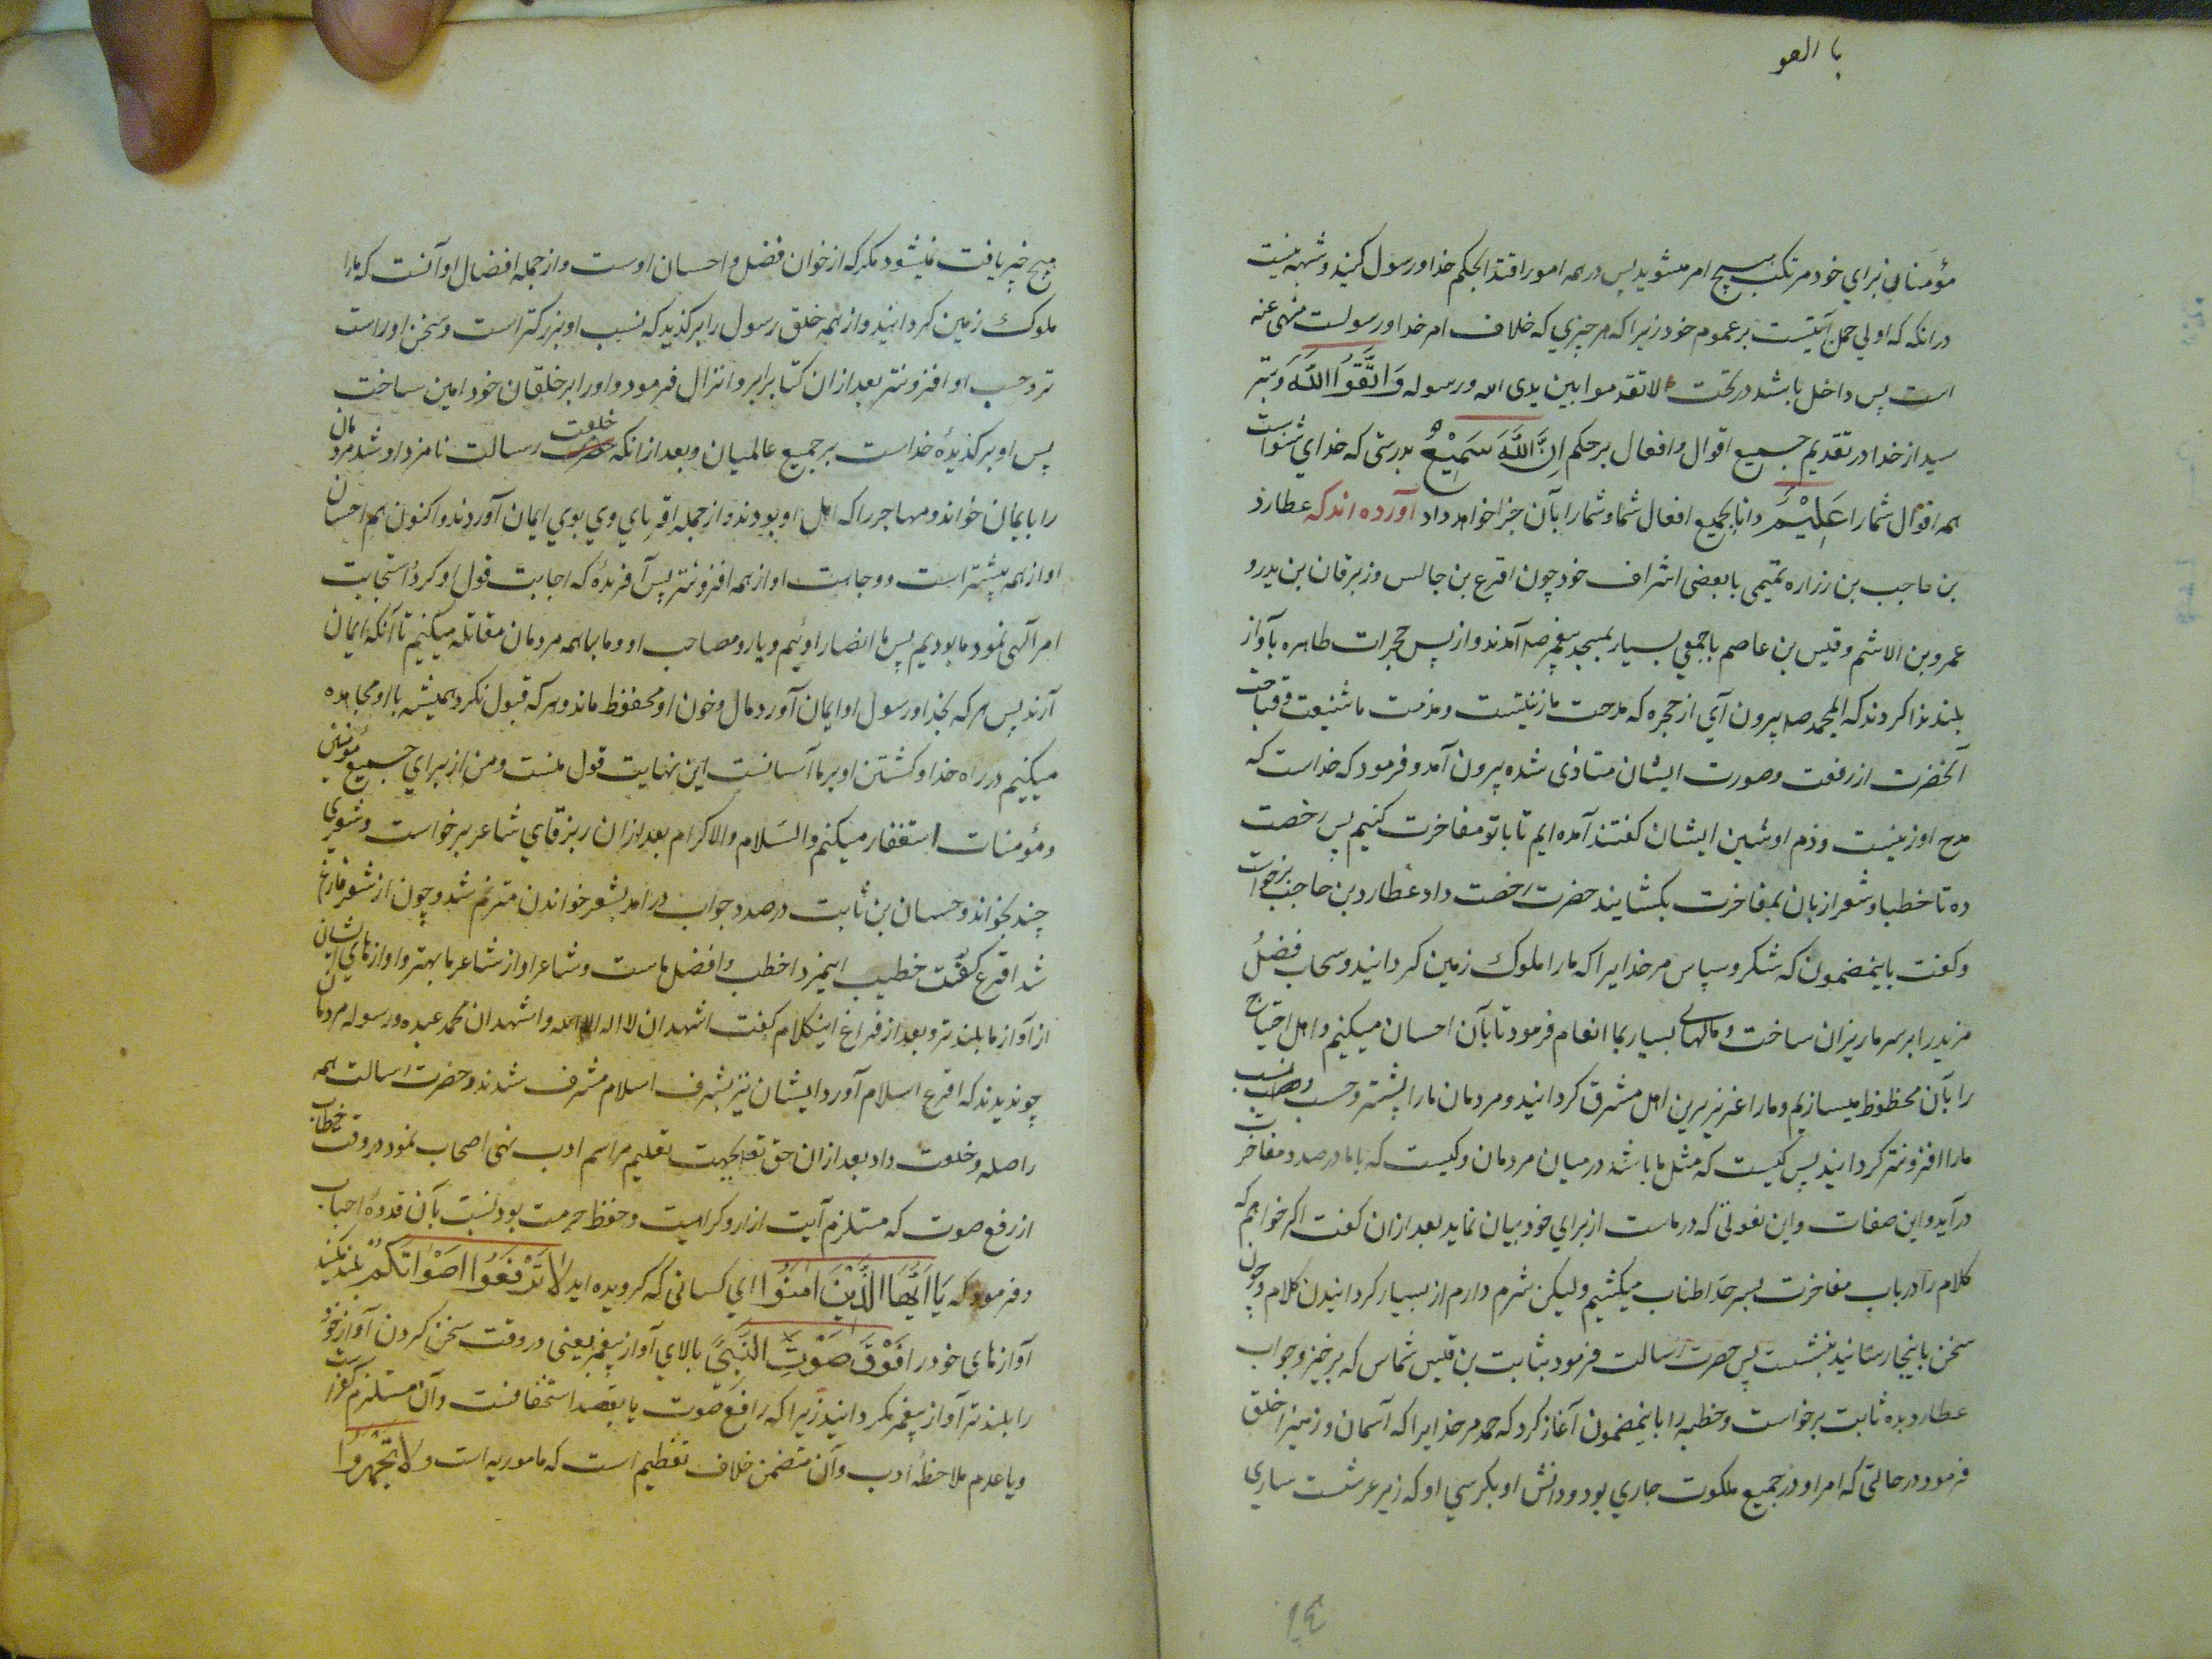 با العو
مؤمنان برای خود مرتکب هیچ امر مشوید پس در همه امور اقتدا بحکم خدا و رسول کنید و شبهه نیست
در انکه که اولی حمل آیتست بر عموم خود زیرا که هر چیزی که خلاف امر خدا و رسولست منهی عنه
است پس داخل باشد در تحت لا تقدموا بین یدی الله و رسوله وَاتَّقُوا اللَّهَ و بتر
سید از خدا در تقدیم جمیع اقوال و افعال بر حکم اِنَّ اللَّهَ سَمِيْعٌ بدرستی که خدای شنواست
همه اقوال شما را عَلِيْمٌ دانا بجمیع افعال شما و شما را بآن جزا خواهد داد آورده اند که عطارد
بن حاجب بن زراره تمیمی با بعضی اشراف خود چون اقرع بن حالس و زبرقان بن بدر و
عمرو بن الاشم و قیس بن عاصم با جمعی بسیار بمسجد پیغمبر صه آمدند و از پس حجرات طاهره بآواز
بلند ندا کردند که ای محمد صه بیرون آی از حجره که مدحت ما زینتست و مذمت ما شنیعت و قباحت
آنحضرت از رفعت و صورت ایشان متاذی شده بیرون آمد و فرمود که خداست که
مدح او زینیست و ذم او شین ایشان کفتند آمده ایم تا با تو مفاخرت کنیم پس رخصت
ده تا خطبا و شعرا زبان بمفاخرت بکشایند حضرت رخصت داد عطارد بن حاجب برخواست
و کفت باینمضمون که شکر و سپاس مر خدایرا که ما را ملوک زمین کردانید و سحاب فضل
مزید را بر سر ما ریزان ساخت و مالهای بسیار بما انعام فرمود تا بآن احسان میکنیم و اهل احتیاج
را بآن محظوظ میسازیم و ما را عزیزترین اهل مشرق کردانید و مردمان ما را بیشتر و حسب و نسب
ما را افزونتر کردانید پس کیست که مثل ما باشد در میان مردمان و کیست که با ما درصدد مفاخرت
درآید و این صفات و این نعوتی که در ماست از برای خود بیان نماید بعد ازان کفت اکر خواهم که
کلام را در باب مفاخرت بسرحد اطناب میکشیم ولیکن شرم دارم از بسیار کردانیدن کلام و چون
سخن باینجا رسانید بنشست پس حضرت رسالت فرمود بثابت بن قیس شماس که برخیز و جواب
عطارد بده ثابت برخواست و خطبه را باینمضمون آغاز کرد که حمد مر خدایرا که آسمان و زمینرا خلق
فرمود در حالتی که امر او در جمیع ملکوت جاری بود و دانش او بکرسی او که زیر عرشست ساری
هیچ خیر یافت نمیشود مکر که از خوان فضل و احسان اوست و از جمله افضال او آنست که ما را
ملوک زمین کردانید و از همه خلق رسول را برکذید که بنسب او بزرکتر است و سخن او راست
تر و حسب او افزونتر بعد ازان کتابرا برو انزال فرمود و او را بر خلقان خود امین ساخت
پس او برکذیدۀ خداست بر جمیع عالمیان و بعد از انکه خلعت رسالت نامزد او شد مردمان
را بایمان خواند و مهاجر را که اهل او بودند و از جمله اقربای وی بوی ایمان آوردند و اکنون هم احسان
او از همه بیشتر است و وجاهت او از همه افزونتر پس آفریدۀ که اجابت قول او کرد و استجابت
امر آلهی نمود ما بودیم پس ما انصار اوئیم و یار و مصاحب او و ما با همه مردمان مقاتله میکنیم تا آنکه ایمان
آرند پس هر که بخدا و رسول او ایمان آورد مال و خون او محفوظ ماند و هر که قبول نکرد همیشه با او مجاهده
میکنیم در راه خدا و کشتن او بر ما آسانست این نهایت قول منست و من از برای جمیع مؤمنین
و مؤمنات استغفار میکنم والسلام والاکرام بعد ازان زبرقای شاعر برخواست و شعری
چند بخواند و حسان بن ثابت درصدد جواب درامد بشعر خواندن مترنم شد و چون از شعر فارغ
شد اقرع کفت خطیب اینمرد اخطب و افضل ماست و شاعر او از شاعر ما بهتر و اوازهای ایشان
از آواز ما بلندتر و بعد از فراغ اینکلام کفت اشهد ان لا اله الا الله و اشهد ان محمد عبده و رسوله مردمان
چو ندیدند که اقرع اسلام آورد ایشان نیز بشرف اسلام مشرف شدند و حضرت رسالت همه
را صله و خلعت داد بعد ازان حق تعه بجهت تعلیم مراسم ادب نهی اصحاب نمود در وقت خطاب
از رفع صوت که مستلزم آیت ازار و کراهیت و حفظ حرمت بود نسبت بآن قدوۀ احباب
و فرمود که يَا اَيُّهَا الَّذِينَ اٰمَنُوا ای کسانی که کرویده اید لَا تَرْفَعُوا اَصْوَاتَكُمْ بلند مکنید
آوازهای خود را فَوْقَ صَوْتِ النَّبِيِّ بالای آواز پیغمبر یعنی در وقت سخن کردن آواز خود
را بلندتر آواز پیغمبر مکردانید زیرا که رافع صوت یا بقصد استخفافست و آن مستلزم کفر است
و یا عدم ملاحظۀ ادب و آن متضمن خلاف تعظیم است که مامور به است وَلَا تَجْهَرُوا